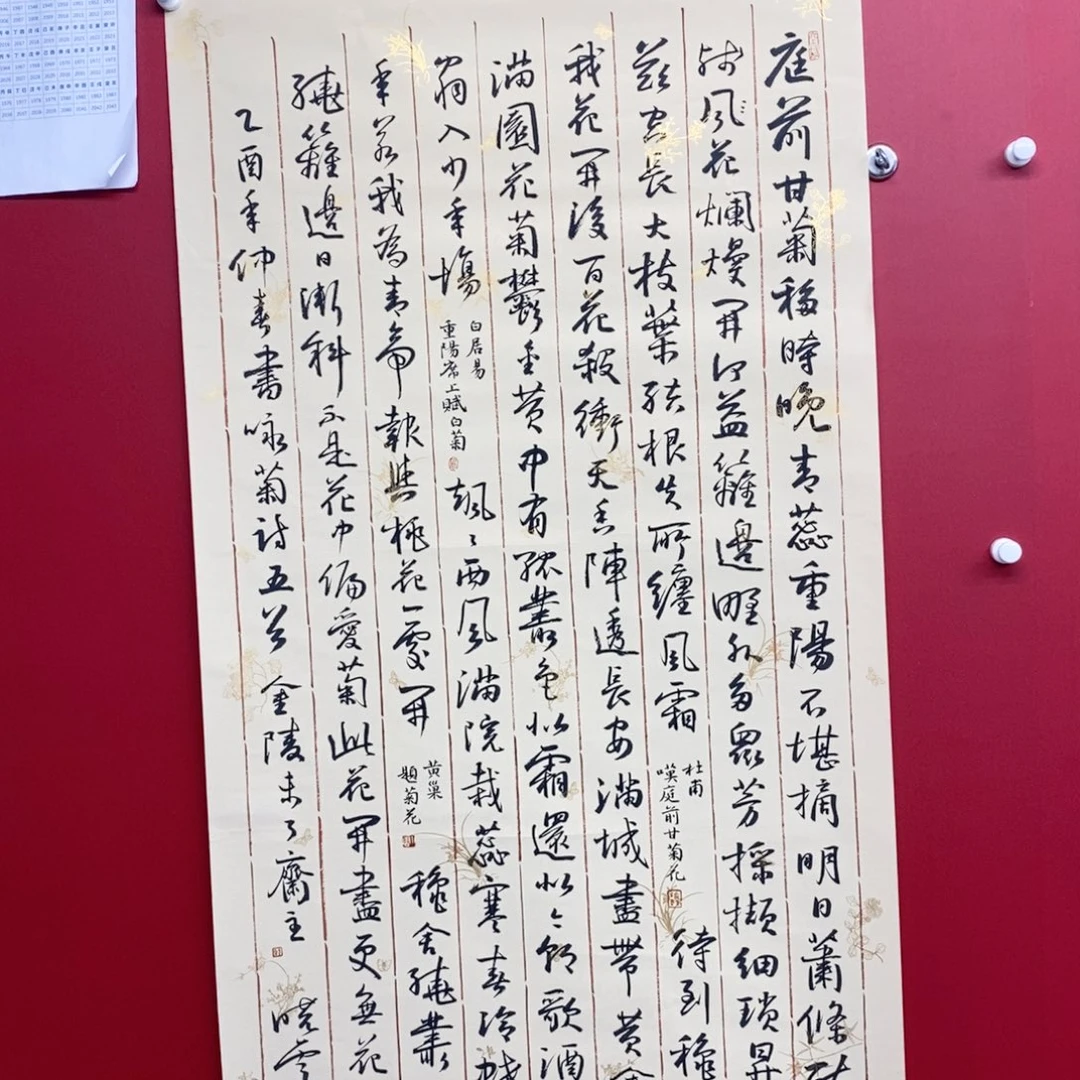 庭前甘菊移時晚青蕊重陽不堪摘明日蕭條
殘風花爛熳開何益籬邊野外多衆芳採擷細瑣昇
茲空長大枝葉結根失所纏風霜
杜甫
嘆庭前甘菊花
待到穐
我花開後百花殺衝天香陣透長安滿城盡帶黃金
滿園花菊鬱金黃中有孤叢色似霜還似今朝歌酒
翁入少年場
白居易
重陽席上賦白菊
颯〻西風滿院栽蕊寒香冷蝶
年若我為青帝報與桃花一處開
黃巢
題菊花
穐舍繞叢
繞籬邊日漸斜不是花中偏愛菊此花開盡更無花
乙酉年仲春書咏菊詩五首 金陵未了齋主 曉雲